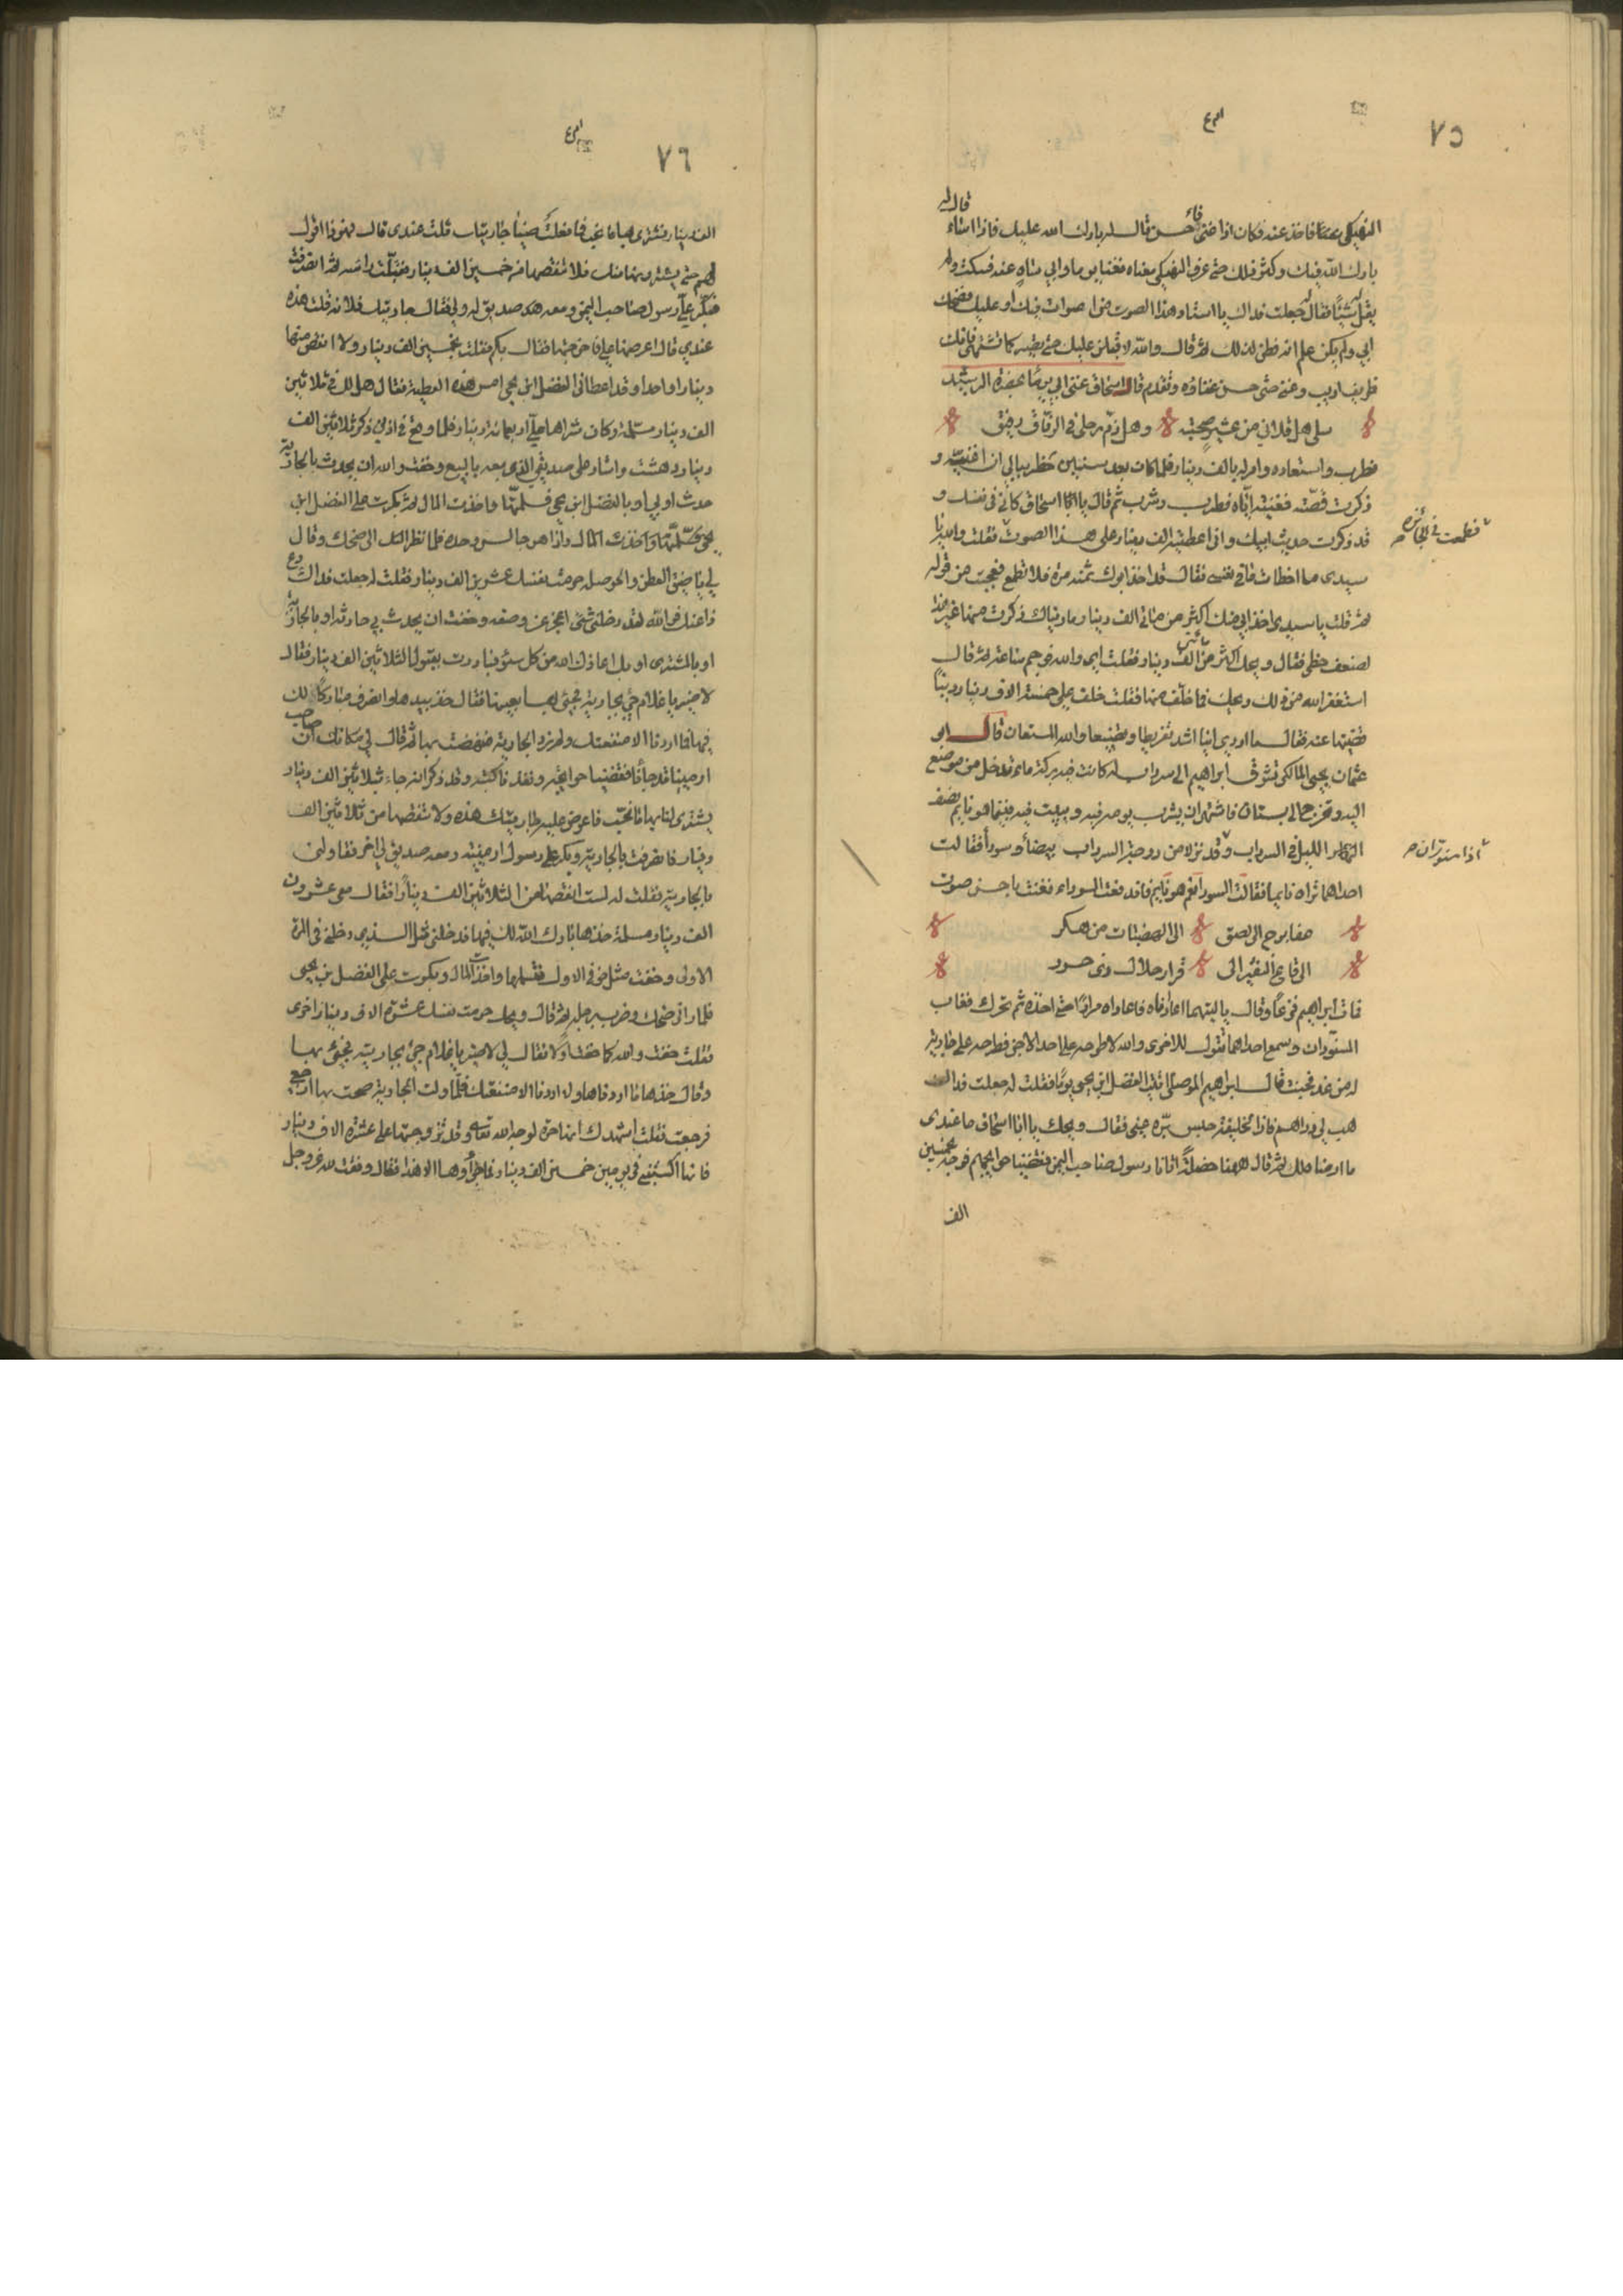 ٧٥
قال له
باراد الله فيك وكثر ذلك حتى عرف النهيكي معناه فغنا يوما وابي ساه عنه فسكت ولم
يقل له شيئا فقال له جعلت فداك يا استاد هذا الصوت من اصوات فيك او عليك فضحك
ابي ولم يكن علم انه فطن لذلك ثم قال والله لاقبلن عليك حتى تصير كما تشتهي فانك
ظريف اديب وعنى حتى حسن غناؤه وتقدم قال اسحاق غنى ابي يوما بحضرة الرشيد
سلي هل قلاني من عشير صحبته وهل ذم رحلي في الرفاق رفيق
فطرب واستعاده وامر له بالف دينار فلما كان بعد سنين خطر ببالي ان اغنيته و
ذكرت قصته فغنيته اياه فطرب وشرب ثم قال يا اسحاق كاني في نفسك و
قد ذكرت حديث ابيك واني اعطيته الف دينار على هذا الصوت فقلت والله يا
فطمعت في الجائزة
سيدي ما اخطات ما في نفسي فقال قد اخذ ابوك ثمنه مرة فلا تطمع فعجبت من قوله
ثم قلت يا سيدي اخذ ابي منك اكثر من مائتي الف دينار ما رايتك ذكرت منها غير هذا
لضعف حظي فقال ويحك اكثر من مائتي الف دينار فقلت اي والله فوجم ساعة ثم قال
استغفر الله من ذلك ويحك فما خلف منها فقلت خلف علي خمسة الاف دينار دينا
قضيتها عنه فقال ما ادري اينا اشد تفريطا وتضييعا والله المستعان قال ابو
عثمان يحيى المالكي تشوق ابراهيم الى سرداب له كانت فيه بركة ماء تدخل من موضع
اليه وتخرج الى بستان فاشتهى ان يشرب يومه فيه ويبيت فيه فبينما هو نايم نصف
الليل في السرداب وقد نزلا من درجة السرداب بيضا وسودا فقالت
اذا سنوران
احداهما تراه نايما فقالت السودا نعم هو نايم فاندفعت السوداء فغنت باحسن صوت
عفا برح الى لصق الى الهضبات من هكر
الى قاع النقير الى قرار حلال ذي حدر
فمات ابراهيم فرحا وقال يا ليتهما اعاداه فاعاداه مرارا حتى اخذه ثم تحرك فغاب
السنوران وسمع احداهما تقول للاخرى والله لا طرحه على احد الا جن فطرحه على جارية
له من غد فجنت قال ابراهيم الموصلي اتيت الفضل ابن يحيى يوما فقلت له جعلت فداك
هب لي دراهم فان الخليفة حبس بره عني فقال ويحك يا ابا اسحاق ما عندي
ما ارضاه لك ثم قال ههنا خصلة اتانا رسول صاحب اليمن فقضينا حوايجهم فوجه بخمسين
الف
٧٦
الف دينار يشتري بها ما نحب فما فعلت ضيا جاريتك قلت عندي قال فهو ذا اقول
لهم حتى يشتروها منك فلا تنقصها من خمسين الف دينار فقبلت راسه ثم انصرفت
فبكر علي رسول صاحب اليمن ومعه صديق له ولي فقال جاريتك فلانة قلت هذه
عندي قال اعرضها علي فاخرجتها فقال بكم فقلت بخمسين الف دينار ولا انقص منها
دينارا واحدا وقد اعطاني الفضل ابن يحيى امس هذه العطية فقال هل لك في ثلاثين
الف دينار مسلمة وكان شراها علي اربعمائة دينار فلما وقع في اذني ذكر ثلاثين الف
دينار دهشت واشار علي صديقي الذي معه بالبيع وخفت والله ان يحدث بالجارية
حدث او بي او بالفضل ابن يحيى فسلمتها واخذت المال ثم بكرت على الفضل ابن
يحيى واذا هو جالس وحده فلما نظر الي ضحك وقال
لي يا ضيق العطن والحوصلة حرمت نفسك عشرين الف دينار فقلت له جعلت فداك دع
ذا عنك فوالله لقد دخلني شيء اعجز عن وصفه وخفت ان يحدث بي حادثة او بالجارية
او بالمشتري او بك اعاذك الله من كل سوء فبادرت بقبول الثلاثين الف دينار فقال
لا ضير يا غلام جئ بجاريته فجئ بها بعينها فقال خذ بيدها وانصرف مباركا لك
فيها فما اردنا الا منفعتك ولم نرد الجارية فنهضت بها ثم قال لي مكانك ان صاحب
ارمينية قد جاءنا فقضينا حوايجه ونفذنا كتبه وقد ذكر انه جاء بثلاثين الف دينار
يشتري لنا بها ما نحب فاعرض عليه جاريتك هذه ولا تنقصها من ثلاثين الف
دينار فانصرفت بالجارية وبكر علي رسول ارمينية ومعه صديق لي اخر فقاولني
بالجارية فقلت له لست انقصها من الثلاثين الف دينارا فقال معي عشرون
الف دينار مسلمة خذها بارك الله لك فيها فدخلني مثل الذي دخلني في المرة
الاولى وخفت مثل خوفي الاول فسلمتها واخذت المال وبكرت على الفضل بن يحيى
فلما راني ضحك وضرب برجله ثم قال ويحك حرمت نفسك عشرة الاف دينار اخرى
فقلت خفت والله كما خفت اولا فقال لي لا ضير يا غلام جئ بجاريته فجئ بها
وقال خذها ما اردناها وما اردنا الا منفعتك فلما ولت الجارية صحت بها ارجعي
فرجعت فقلت اشهدك انها حرة لوجه الله تعالى وقد تزوجتها على عشرة الاف دينار
فانها اكسبتني في يومين خمسين الف دينار فما جزاؤها الا هذا فقال وفقت لله عز وجل